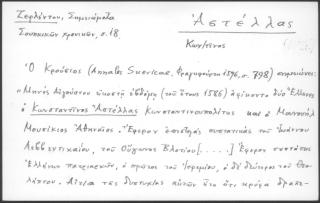 Ζερλέντου, Σημειώματα
Σουηκικῶν χρονικῶν, σ. 18
Ἀστέλλας
Κων/τῖνος
Ὁ Κρούσιος (Annales Suevicae, Φραγκφούρτη 1596, σ. 798) σημειώνει:
«Μηνὸς Αὐγούστου εἰκοστῇ ἑβδόμῃ (τοῦ ἔτους 1585) ἀφίκοντο δύο Ἕλληνες
ὁ Κωνσταντῖνος Ἀστέλλας Κωνσταντινουπολίτης καὶ ὁ Μανουὴλ
Μουσίκιος Ἀθηναῖος. Ἔφερον ἐπιστολὰς συστατικὰς τοῦ Ἰωάννου
τοῦ Οὕγωνος Βλοτίου [.....] Ἔφερον συστάσεις
Ἑλλήνων πατριαρχῶν, ὁ πρῶτος τοῦ Ἱερεμίου, ὁ δὲ δεύτερος τοῦ Θεο-
λήπτου. Αἰτία τῆς δυστυχίας αὐτῶν ἦτο ὅτι